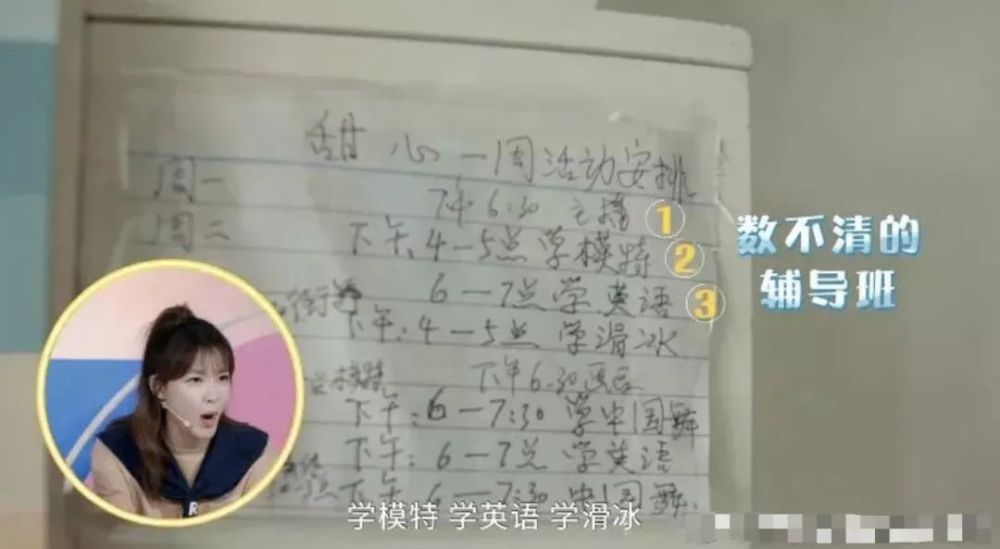 甜心一周活动安排
周一 下午6:30 主播 1
周二 下午:4—5点 学模特 2
6—7点学英语 3
下午:4—5点 学滑冰
下午6:30画画
下午:6—7:30 学中国舞
下午:6—7点 学英语
下午 6—7:30 中国舞
数不清的
辅导班
学模特 学英语 学滑冰